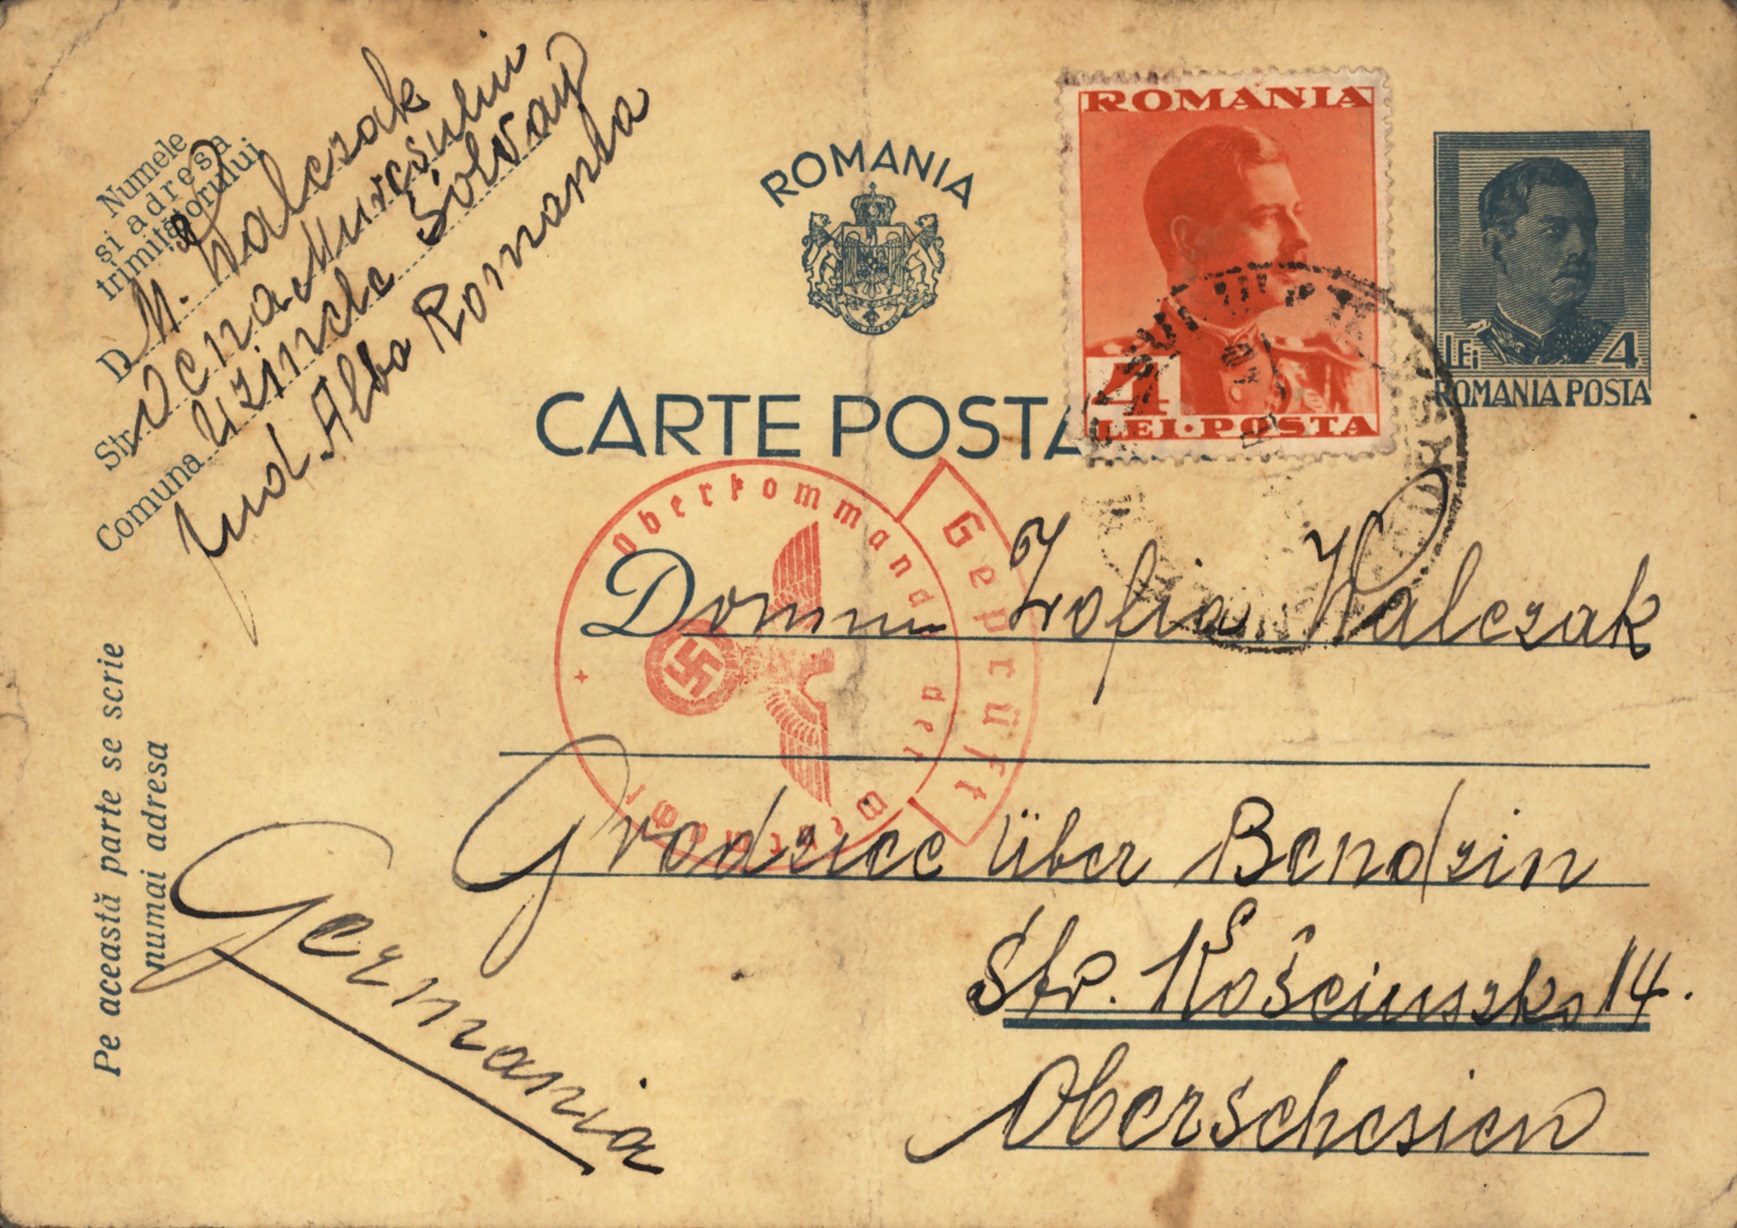 Numele
și adresa
trimițătorului
D M. Walczak
Str. Ocna Mureșului
Comuna Uzinele Solvay
Jud. Alba Romania
ROMANIA
ROMANIA
4
LEI·POSTA
LEI 4
ROMANIA POSTA
CARTE POSTA
Oberkommando der Wehrmacht
Geprüft
Domnu Zofia Walczak
Grodziec über Bendzin
Str. Kościuszko 14.
Oberschesien
Germania
Pe această parte se scrie
numai adresa